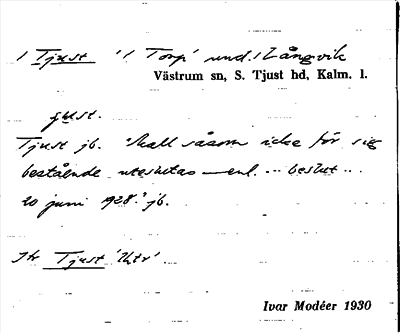 1 Tjust '1 Torp' und. 1 Långvik
Västrum sn, S. Tjust hd, Kalm. l.
just.
Tjust jb. "skall såsom icke för sig
bestående uteslutas – enl. ... beslut ...
20 juni 1928." jb.
Str Tjust 'Utr'
Ivar Modéer 1930